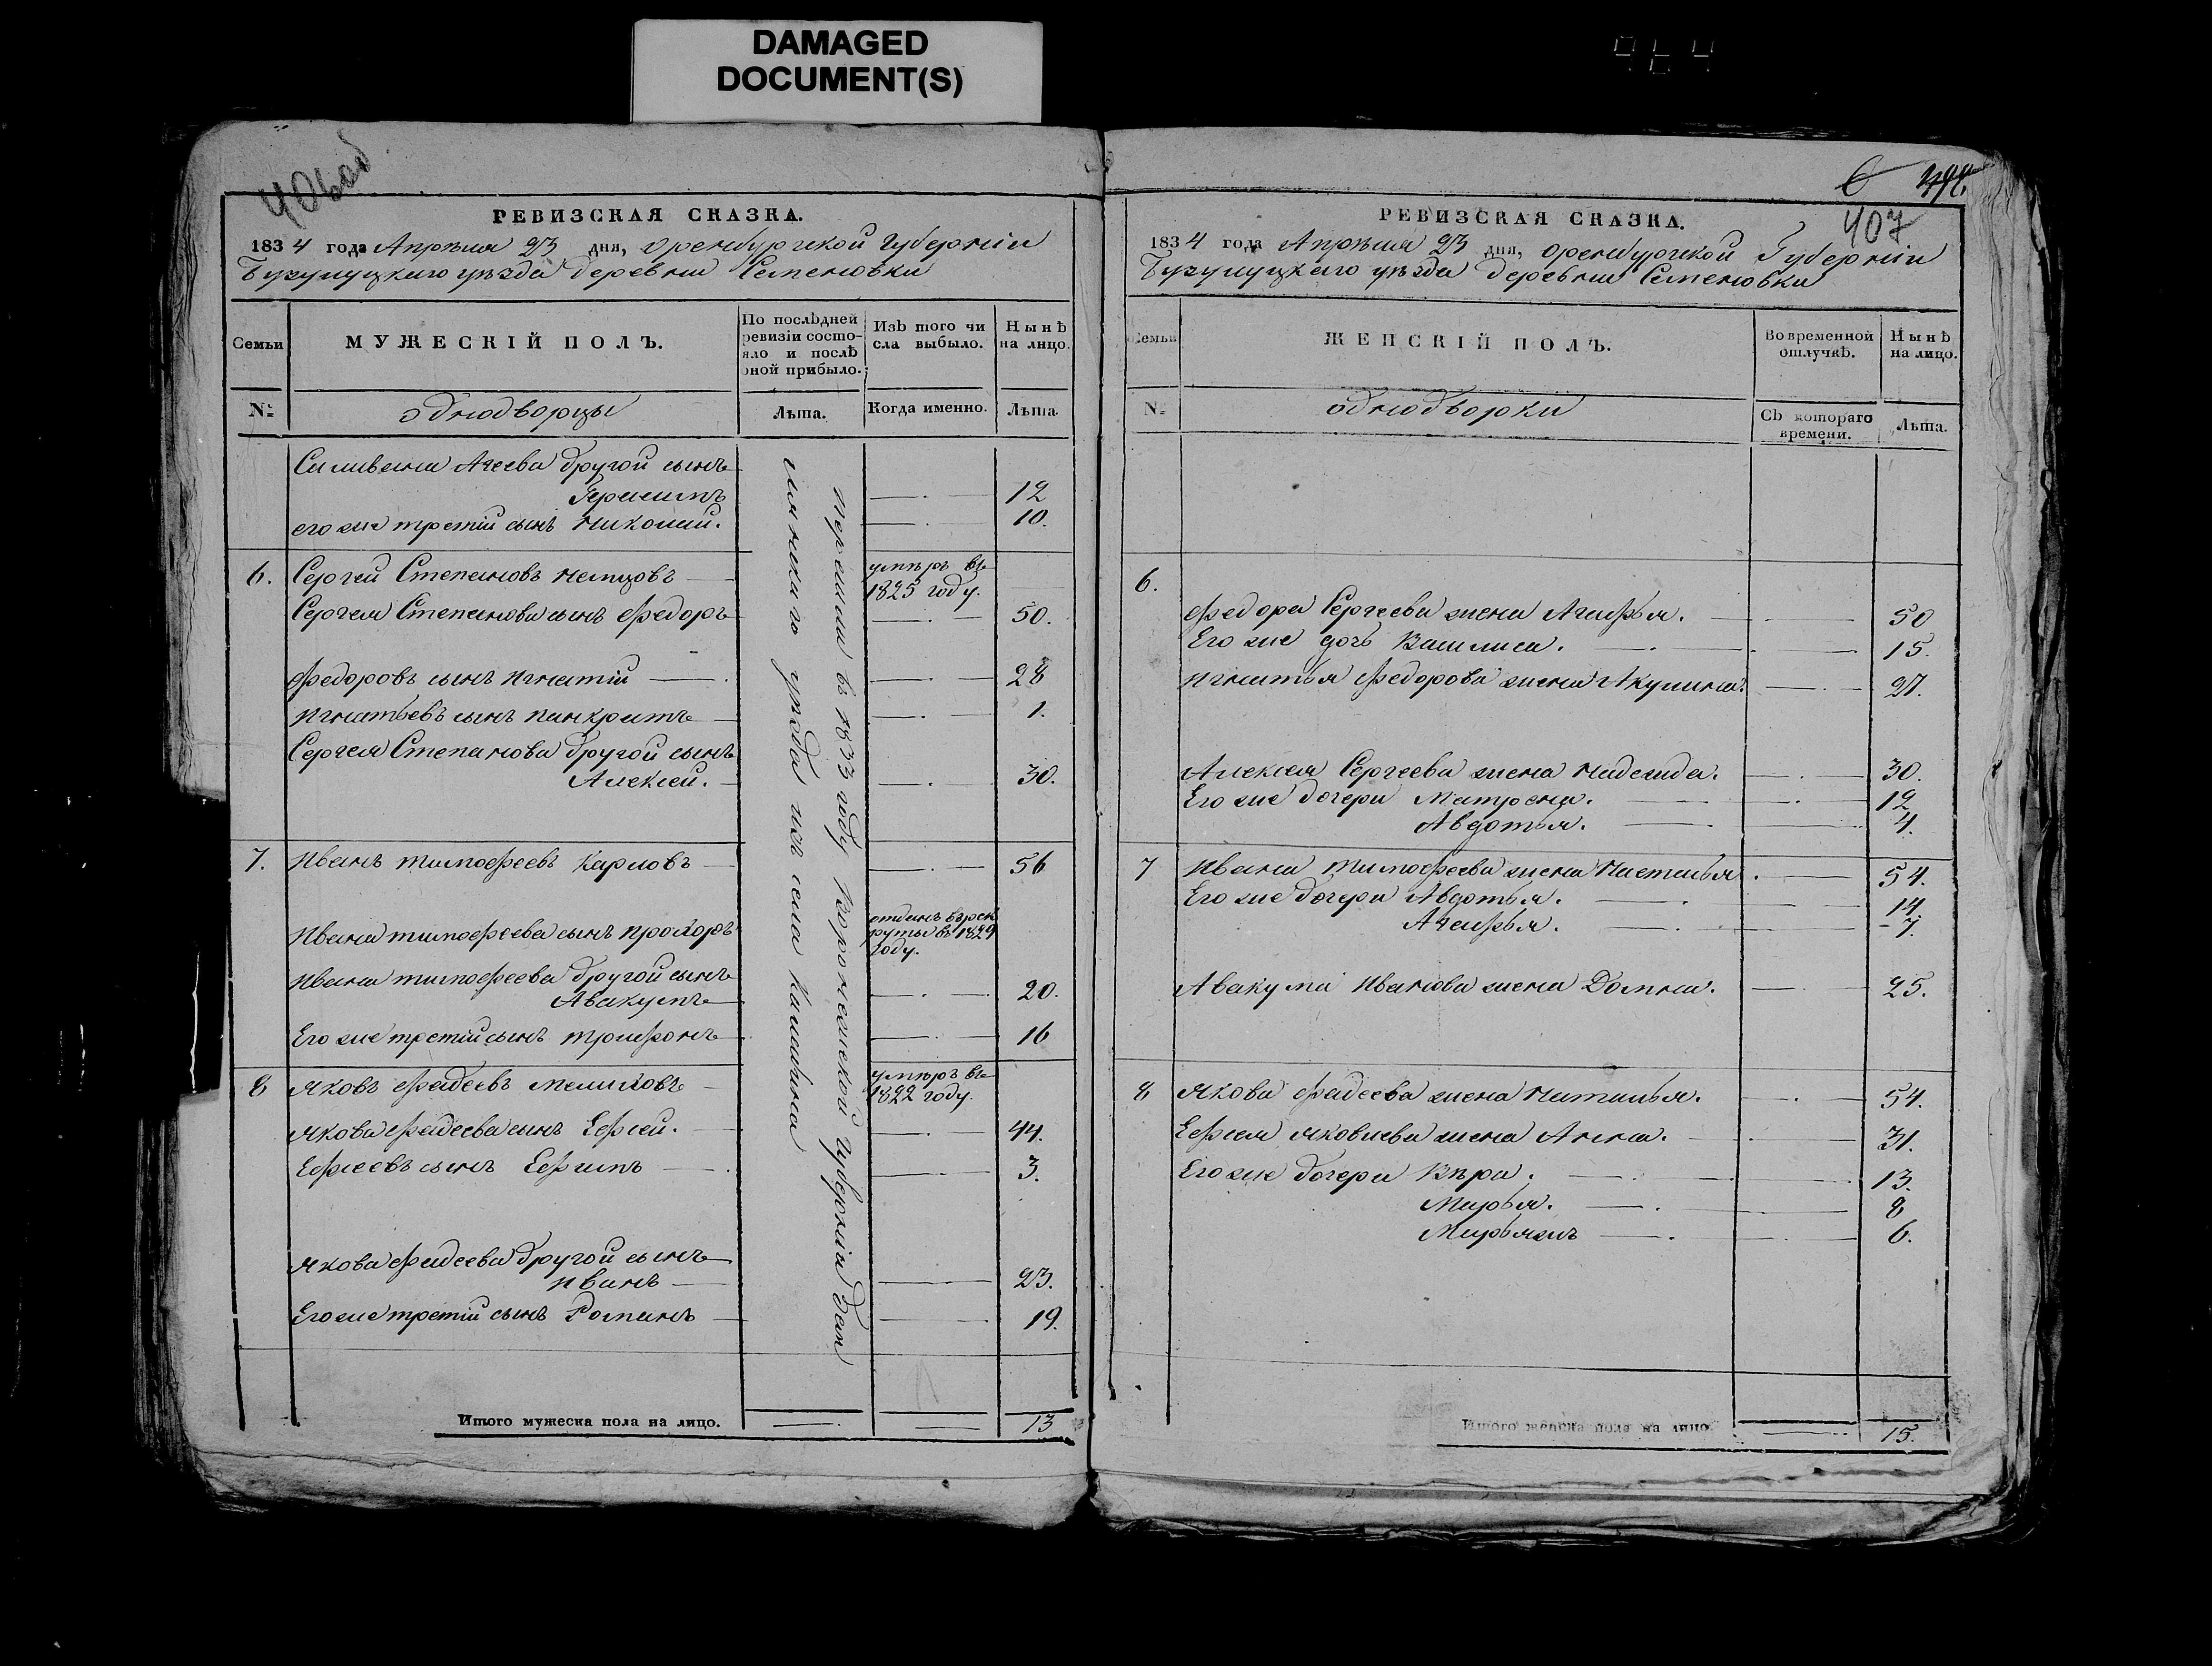 DAMAGED
DOCUMENT(S)
406 об
РЕВИЗСКАЯ СКАЗКА.
1834 года Апрѣля 23 дня, Оренбургской Губерніи
Бузулуцкаго уѣзда деревни Семеновки
Семьи
МУЖЕСКІЙ ПОЛЪ.
По послѣдней ревизіи состояло и послѣ оной прибыло.
Изъ того числа выбыло.
Нынѣ на лицо.
№
однодворцы
Лѣта.
Когда именно.
Лѣта.
Силивана Агеева другой сынъ
Герасимъ 12
его же третій сынъ Николай. 10.
6. Сергей Степановъ Немцовъ умѣръ въ 1825 году.
Сергея Степанова сынъ Федоръ 50.
Федоровъ сынъ Игнатій 28
Игнатьевъ сынъ Панкратъ 1.
Сергея Степанова другой сынъ
Алексей. 30.
7. Иванъ Тимофеевъ Карловъ 56
Ивана Тимофеева сынъ Прохоръ отданъ в рекруты въ 1829 году.
Ивана Тимофеева другой сынъ
Авакумъ 20.
Его же третій сынъ Трифонъ 16
8 Яковъ Фадеевъ Мелиховъ умѣръ въ 1822 году.
Якова Фадеева сынъ Ефсей. 44.
Ефсеевъ сынъ Ефимъ 3.
Якова Фадеева другой сынъ
Иванъ 23.
Его же третій сынъ Романъ 19.
перешли въ 1833 году Воронежской Губерніи Бол
уѣзда изъ села
Итого мужеска пола на лицо. 13
6
407
РЕВИЗСКАЯ СКАЗКА.
1834 года Апрѣля 23 дня, Оренбургской Губерніи
Бузулуцкаго уѣзда деревни Семеновки
Семьи
ЖЕНСКІЙ ПОЛЪ.
Во временной отлучкѣ.
Нынѣ на лицо.
№
однодворки
Съ котораго времени.
Лѣта.
6.
Федора Сергеева жена Агафья. 50
Его же дочь Василиса. 15.
Игнатья Федорова жена Акулина. 27.
Алексея Сергеева жена Надежда. 30.
Его же дочери Матрена. 12
Авдотья. 4.
7 Ивана Тимофеева жена Настасья. 54.
Его же дочери Авдотья. 14.
Агафья. 7.
Авакума Иванова жена Домна. 25.
8 Якова Фадеева жена Наталья. 54.
Ефсея Яковлева жена Анна. 31.
Его же дочери Вѣра. 13.
Марья. 8
Марья жъ 6.
Итого женска пола на лицо. 15.